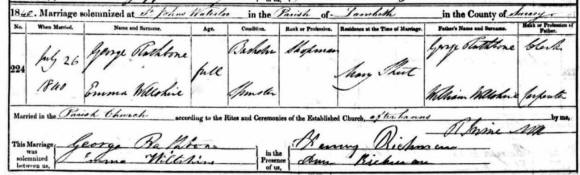 1840. Marriage solemnized at St Johns Waterloo in the Parish of Lambeth in the County of Surrey
No. When Married. Name and Surname. Age. Condition. Rank or Profession. Residence at the Time of Marriage. Father's Name and Surname. Rank or Profession of Father.
224 July 26 1840 George Rathbone full Bachelor Shopman Mary Street George Rathbone Clerk
Emma Wiltshire Spinster William Wiltshire Carpenter
Married in the Parish Church according to the Rites and Ceremonies of the Established Church, after banns by me,
This Marriage was solemnized between us, George Rathbone in the Presence of us, Henry Rickman
Emma Wiltshire Rickman